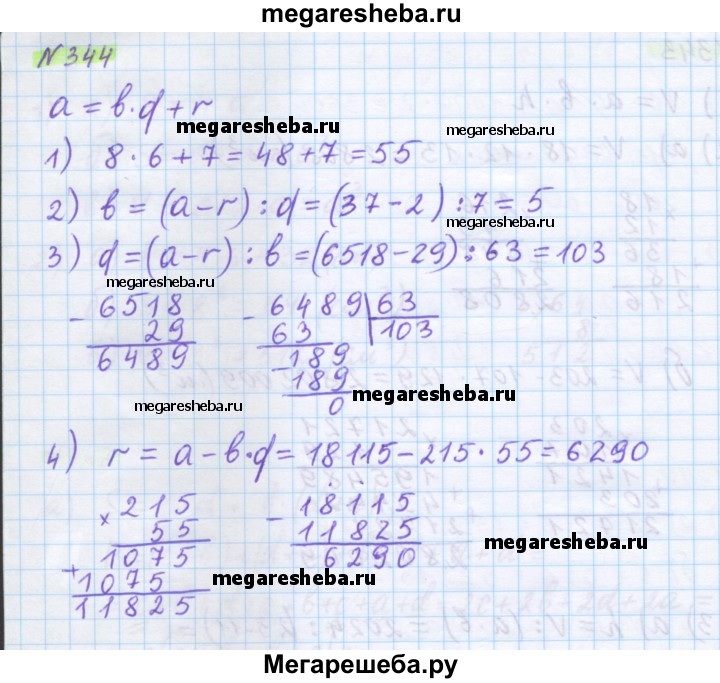 megaresheba.ru
N 344
a = b · q + r
megaresheba.ru
1) 8 · 6 + 7 = 48 + 7 = 55
megaresheba.ru
2) b = (a – r) : q = (37 – 2) : 7 = 5
megaresheba.ru
3) q = (a – r) : b = (6518 – 29) : 63 = 103
megaresheba.ru
– 6518
29
6489
– 6489 | 63
63 103
– 189
189
0
megaresheba.ru
megaresheba.ru
4) r = a – b · q = 18115 – 215 · 55 = 6290
× 215
55
1075
+ 1075
11825
– 18115
11825
6290
megaresheba.ru
megaresheba.ru
Мегарешеба.ру